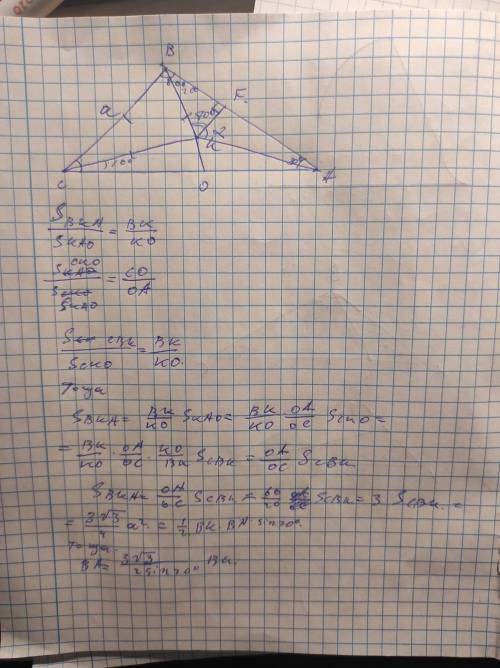 B
a
E
K
C
O
A
S_BKA / S_KAO = BK / KO
S_CKO / S_KAO = CO / OA
S_CBK / S_CKO = BK / KO.
Тоща
S_BKA = BK/KO S_KAO = BK/KO · OA/OC S_CKO =
= BK/KO · OA/OC · KO/BK S_CBK = OA/OC S_CBK
S_BKA = OA/OC S_CBK = 60/20 S_CBK = 3 S_CBK =
= 3√3/4 a² = 1/2 BK BA sin 70°.
Тоща
BA = 3√3 / 2 sin 70° BK.